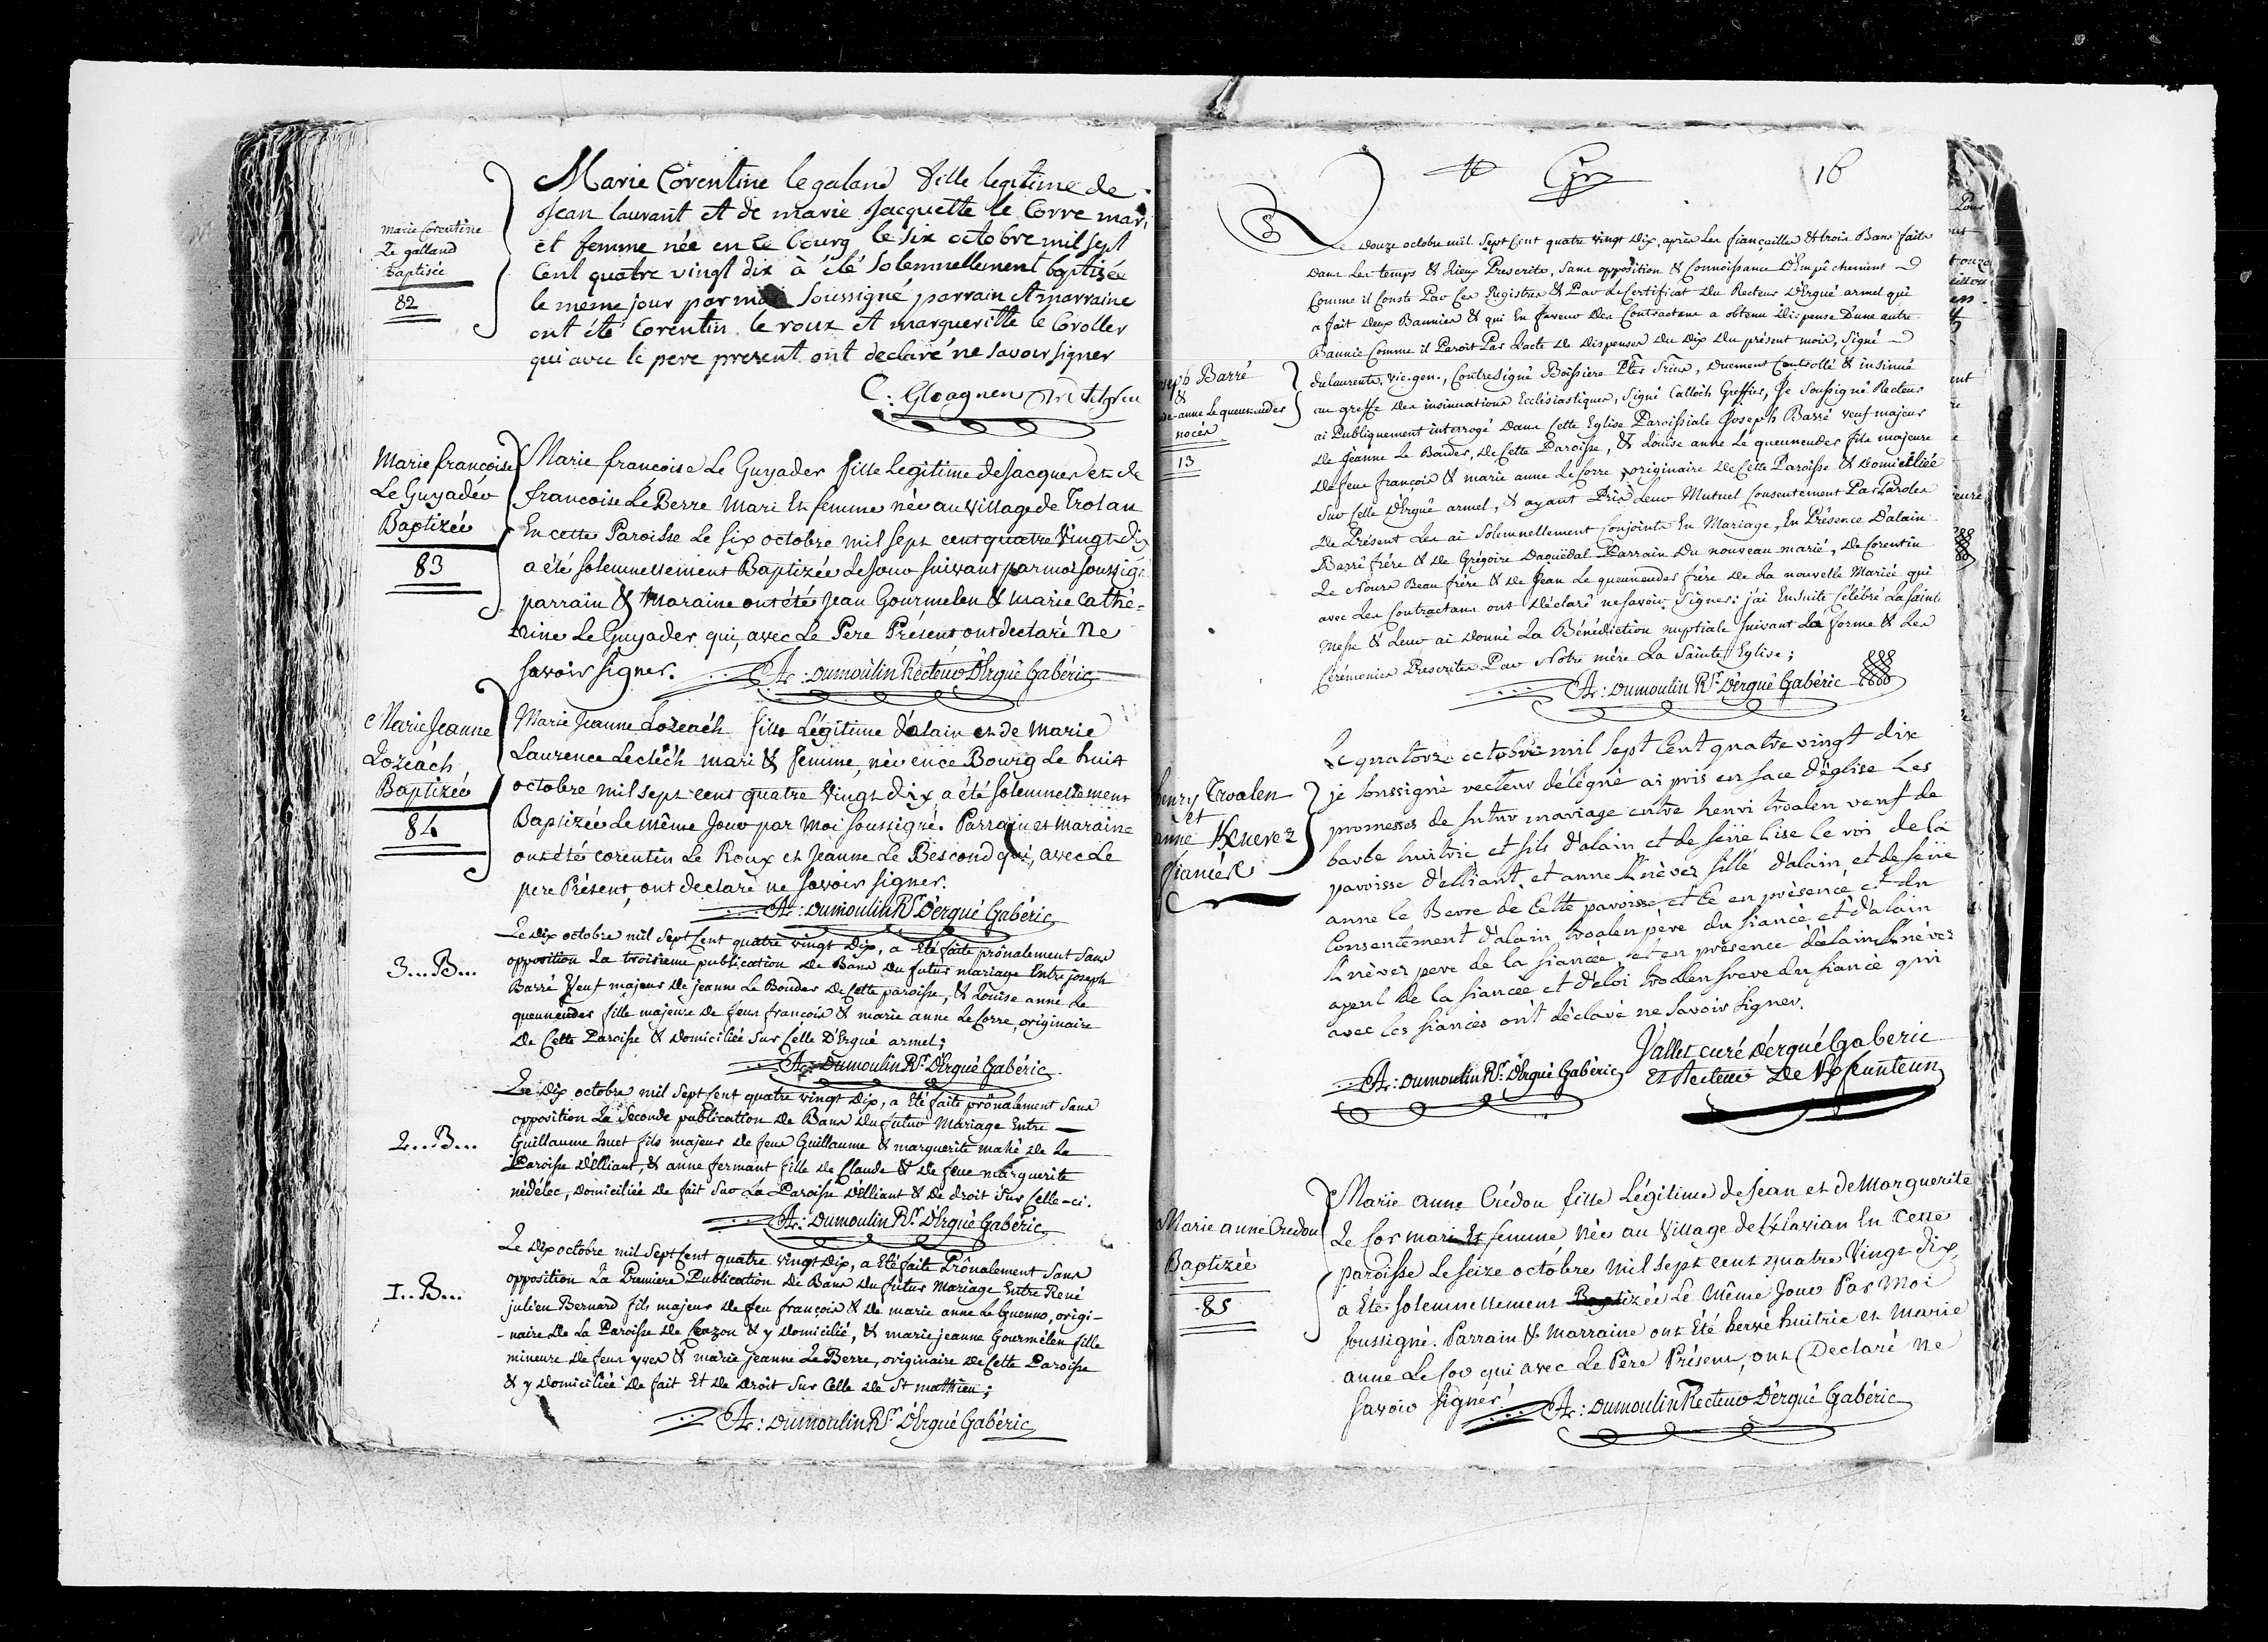 marie Corentine
Le galland
Baptisée
82
Marie Corentine le galand fille legitime de
Jean laurant et de marie Jacquette le Corre mari
et femme née en ce bourg le six octobre mil sept
Cent quatre vingt dix à été solemnellement baptisée
le meme jour par moi soussigné parrain et marraine
ont été Corentin le roux et margueritte le Coroller
qui avec le pere present ont declaré ne savoir signer
C: Gloaguen
Marie françoise
Le Guyadér
Baptizée
83
Marie francoise Le Guyader fille legitime de Jacques et de
francoise Le Berre Mari Et femme née au village de Trolan
En cette Paroisse Le six octobre mil sept cent quatre Vingt dix
a été solemnellement Baptizée Le Jour suivant par moi soussigé
parrain & Maraine ont étés jean Gourmelen & marie Cathé-
rine Le Guyader qui, avec Le Pere Présent ont declaré ne
savoir signer. A: Dumoulin Recteur D'Ergué Gabéric
Marie Jeanne
Lozeách
Baptizée
84
Marie Jeanne Lozeách fille Légitime d'alain et de Marie
Laurence Lecléch mari & femme, née ence Bourg Le huit
octobre mil sept cent quatre Vingt dix a été solemnellement
Baptizée Le même Jour par Moi soussigné. Parrain et maraine
ont été corentin Le Roux et Jeanne Le Bescond qui, avec Le
pere Présent, ont declaré ne savoir signer.
A: Dumoulin Rr. D'Ergué Gabéric
3...B...
Le Dix octobre mil sept Cent quatre vingt Dix, a Eté faite prônalement sans
opposition La troisieme publication de Bans Du futur mariage Entre joseph
Barré Veuf majeur de jeanne Le Bouder de Cette paroisse, & Louise anne Le
queuneuder fille majeure de feus françois & marie anne Le Corre, originaire
de Cette Paroisse & Domiciliée sur Celle D'Ergué armel;
A: Dumoulin Rr. D'Ergué Gabéric
2...B...
Le Dix octobre mil sept Cent quatre vingt Dix, a Eté faite prônalement sans
opposition La Seconde publication de Bans du futur Mariage Entre
Guillaume huet fils majeur de feus Guillaume & marguerite mahé de La
Paroisse d'Elliant, & anne fermant fille de Claude & de feue marguerite
nédélec, domiciliée de fait sur La Paroisse d'Elliant & de droit sur Celle-ci.
A: Dumoulin Rr. D'Ergué Gabéric
I..B...
Le Dix octobre mil sept Cent quatre vingt Dix, a Eté faite Prônalement sans
opposition La Premiere Publication de Bans du futur Mariage Entre René
julien Bernard fils majeur de feu françois & de marie anne Le Guenno, origi-
-naire de La Paroisse de Crozon & y domicilié, & marie jeanne Gourmélen fille
mineure de feus yves & marie jeanne Le Berre, originaire de Cette Paroisse
& y Domiciliée de fait Et de Droit sur Celle de St mathieu;
A: Dumoulin Rr. D'Ergué Gabéric
16
seph Barré
&
anne Le queuneuder
nocés
13
Le Douze octobre mil sept Cent quatre vingt Dix, après Les fiançailles & trois Bans faits
dans Les temps & Lieux Prescrits, sans opposition & Connoissance D'Empêchement
Comme il Conste Par Ces Registres & Par Le Certificat Du Recteur D'Ergué armel qui
a fait Deux Bannies & qui En faveur des Contractans a obtenu Dispense D'une autre
Bannie Comme il Paroit Par L'acte de Dispenses du Dix du présent mois, Signé
dulaurents. vic. gen., Contresigné Boissiere Ptre. , duement Controllé & insinué
au greffe des insinuations Ecclésiastiques, Signé Calloch Greffier, Je soussigné Recteur
ai Publiquement interrogé dans Cette Eglise Paroissiale Joseph Barré veuf majeur
de Jeanne Le Bouder, de Cette Paroisse, & Louise anne Le queuneuder fille majeure
de feus françois & marie anne Le Corre originaire de Cette Paroisse & domiciliée
sur Celle D'Ergué armel, & ayant Pris Leur Mutuel Consentement Par Paroles
de Présent Les ai solemnellement Conjoints En Mariage, En Présence D'alain
Barré frère & de Grégoire Daouëdal Parrain du nouveau marié, de Corentin
Le Nours Beau frère & de Jean Le queuneuder frère de La nouvelle Mariée qui
avec Les Contractans ont déclaré ne savoir signer: j'ai Ensuite Célébré La sainte
Messe & Leur ai donné La Bénédiction nuptiale suivant La forme & Les
Cérémonies Prescrites Par Notre mère La Sainte Eglise;
A: Dumoulin Rr. D'Ergué Gabéric
henry Troalen
et
anne Kneves
fiancés
Le quatorze octobre mil sept Cent quatre vingt dix
je soussigné recteur délégué ai pris en face d'église Les
promesses de futur mariage entre henri troalen veuf de
barbe huitric et fils d'alain et de feüe lise le roi de la
paroisse d'elliant, et anne Knèvez fille d'alain et de feüe
anne le Berre de Cette paroisse, et Ce en présence et du
Consentement d'alain troalen père du fiancé et d'alain
Knèvez pere de la fiancée, et en présence d'alain Knèvez
ayeul de la fiancée et d'éloi troalen frere du fiancé qui
avec les fiancés ont déclaré ne savoir signer.
Vallet curé d'ergué Gaberic
A: Dumoulin Rr. D'Ergué Gabéric Et Recteur De
Marie anne Credou
Baptizée
85
Marie Anne Crédou fille Légitime de Jean et de Marguerite
Le Cor mari Et femme Née au Village de Klavian En Cette
paroisse Le seize octobre Mil sept cent quatre Vingt dix,
a Eté solemnellement Baptizée Le Même Jour Par Moi
soussigné. Parrain & Marraine ont Eté hervé huitric et Marie
anne Le Cor qui avec Le Père Présent, ont Declaré Ne
savoir signer. A: Dumoulin Recteur D'ergué Gabéric